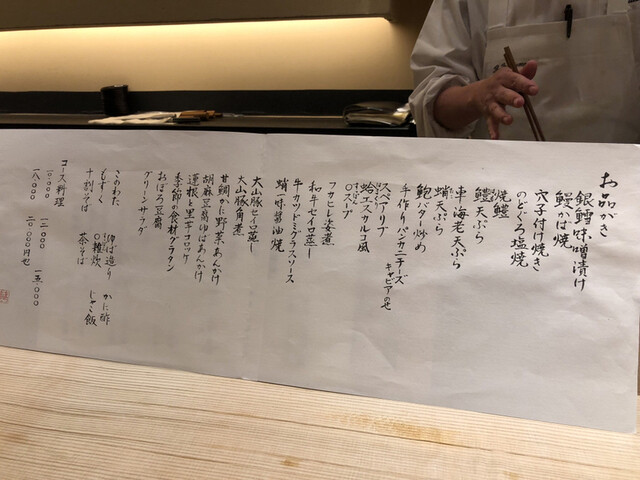 お品がき
銀鱈味噌漬け
鰻かば焼
穴子付け焼き
のどぐろ塩焼
焼鱧
鱧天ぷら
車海老天ぷら
蛸天ぷら
鮑バター炒め
手作りバンカニチーズ
キャビアのせ
スペアリブ
蛤エスカルゴ風
〇スープ
フカヒレ姿煮
和牛セイロ蒸し
牛カツデミグラスソース
蛸一味醤油焼
大山豚セイロ蒸し
大山豚角煮
甘鯛かに野菜あんかけ
胡麻豆腐ゆばあんかけ
蓮根と里芋コロッケ
季節の食材グラタン
おぼろ豆腐
グリーンサラダ
このわた ゆば造り かに酢
もずく 〇雑炊 じゃこ飯
十割そば 茶そば
コース料理
一〇〇〇〇 一二〇〇〇 一五〇〇〇
一八〇〇〇 二〇〇〇〇円也